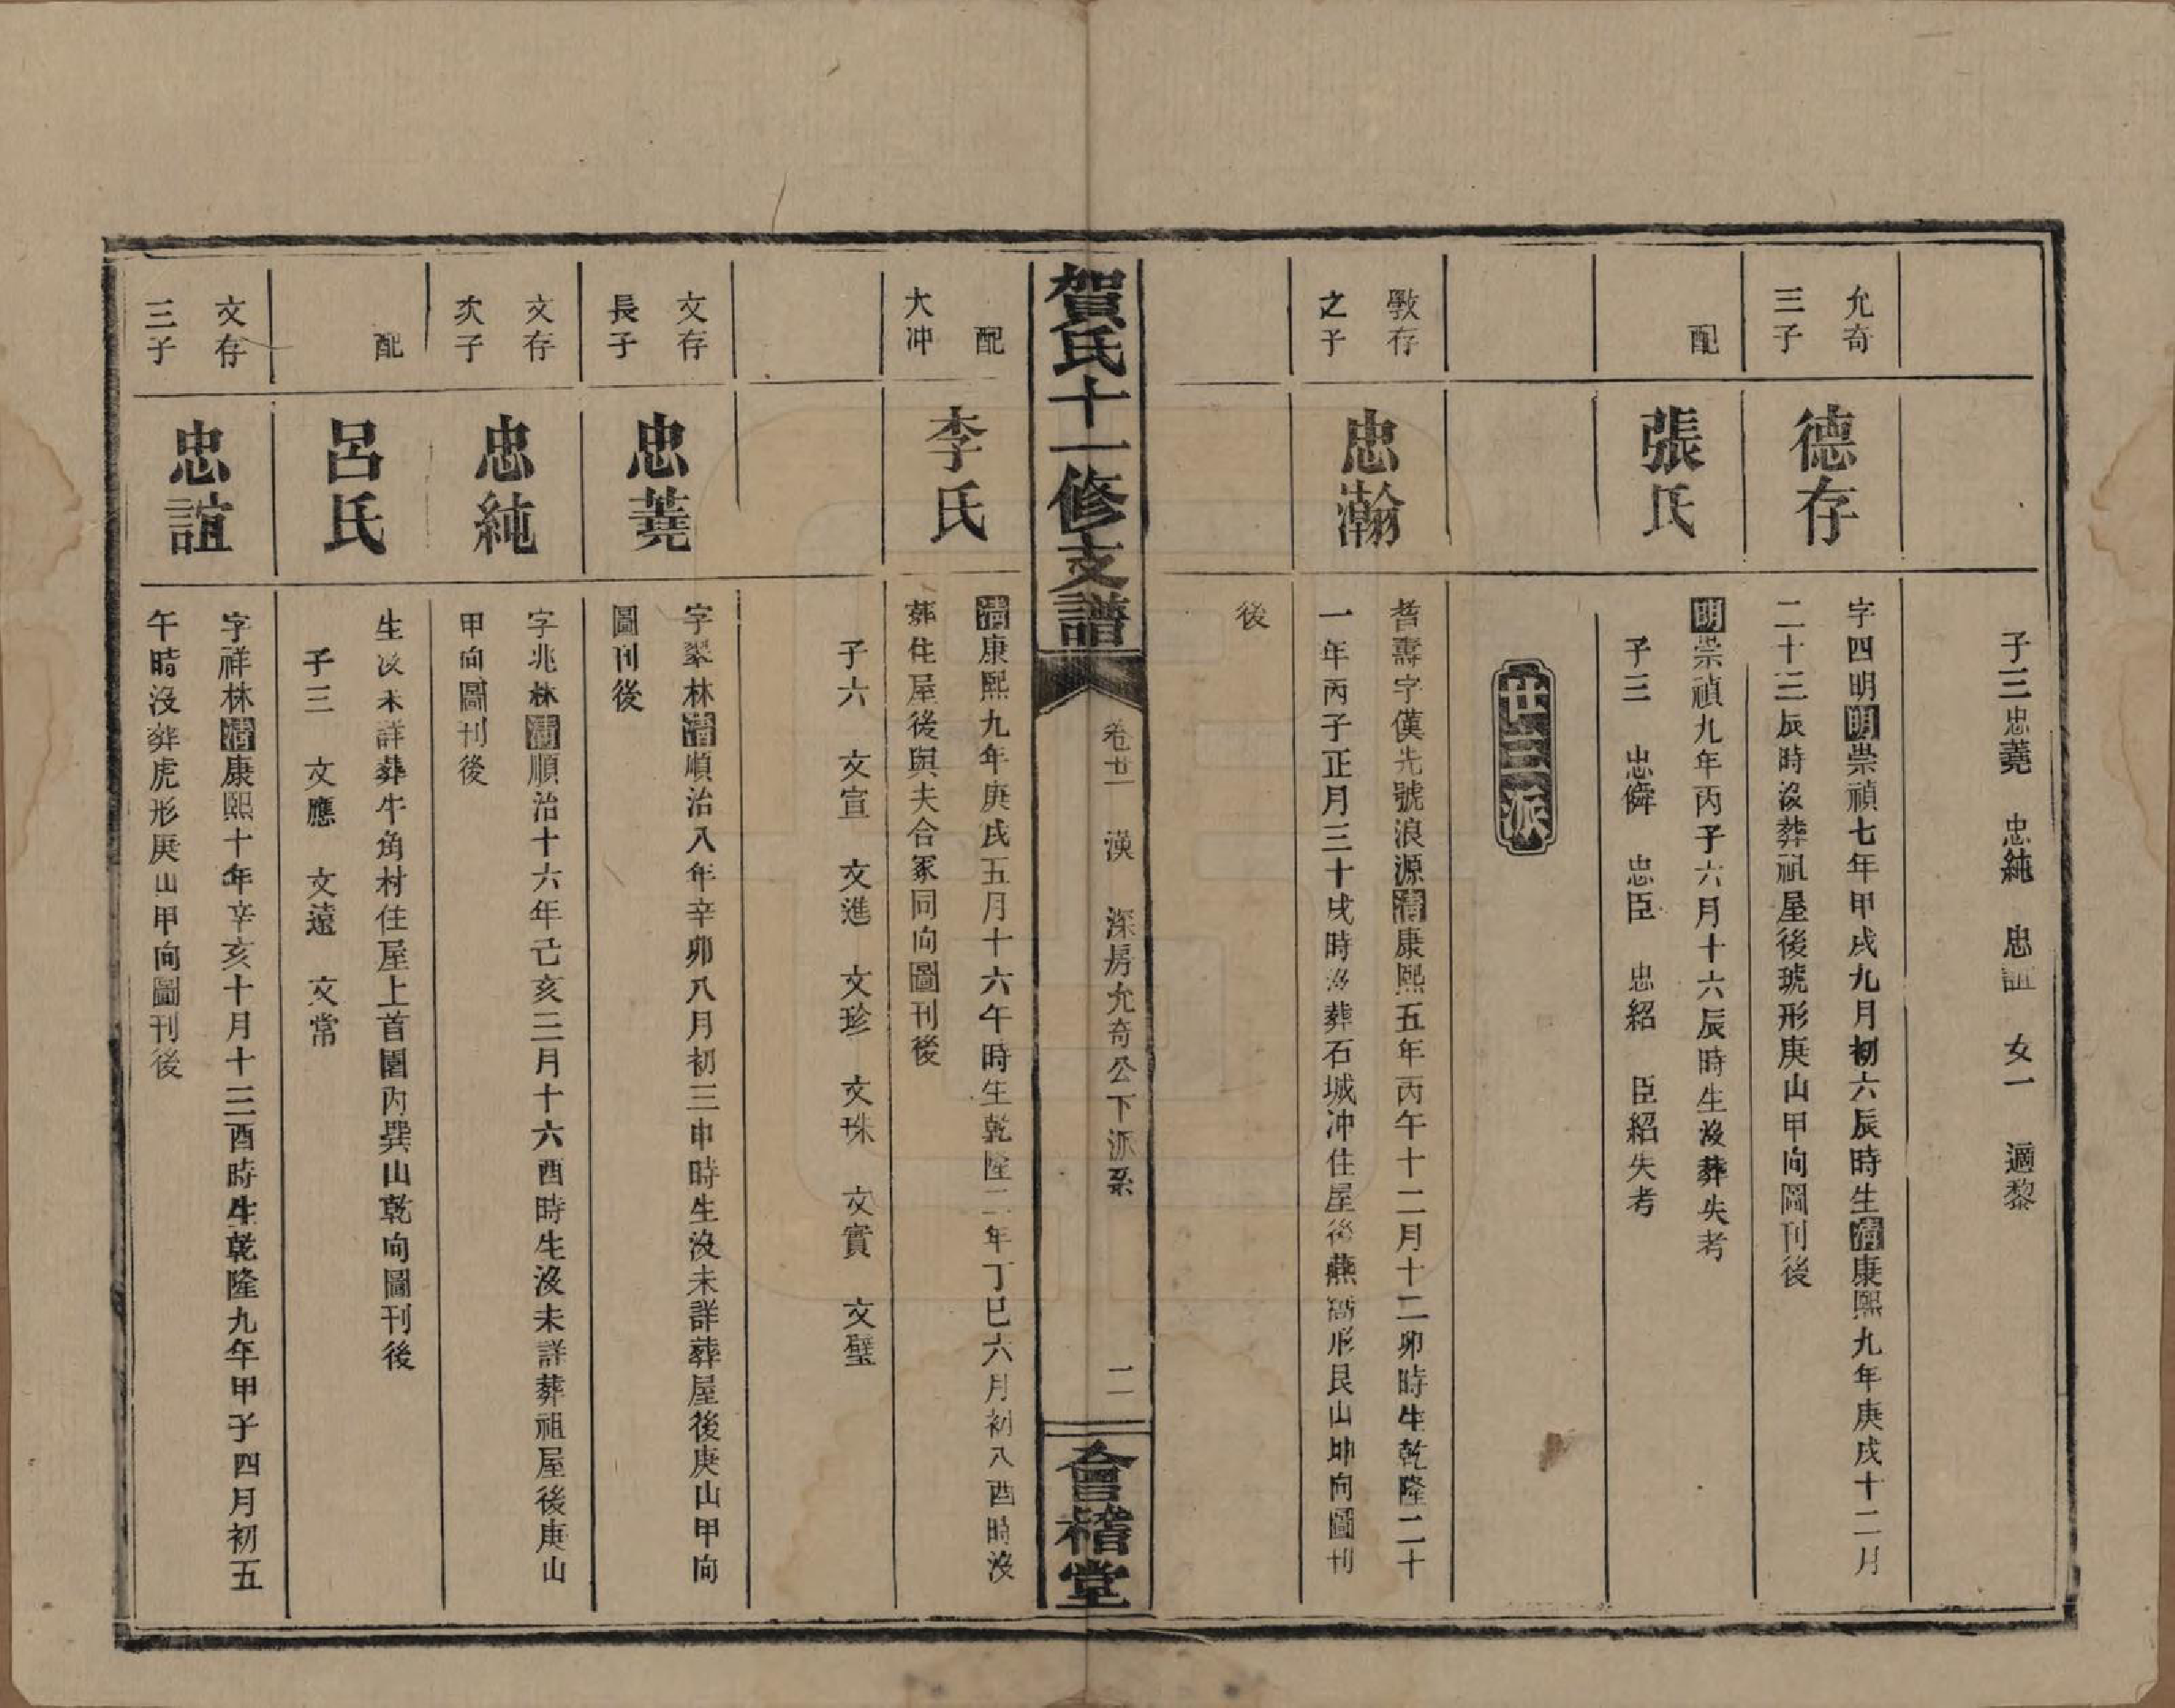 子三忠蕘　忠純　忠誼　女一　適黎
允奇
三子
德存
字四明明崇禎七年甲戌九月初六辰時生清康熙九年庚戌十二月
二十三辰時沒葬祖屋後琥形庚山甲向圖刊後
配
張氏
明崇禎九年丙子六月十六辰時生沒葬失考
子三　忠傧　忠臣　忠紹　臣紹失考
廿三派
斆存
之子
忠瀚
耆壽字漢先號浪源清康熙五年丙午十二月十二卯時生乾隆二十
一年丙子正月三十戌時沒葬石城冲住屋後燕窩形艮山坤向圖刊
後
賀氏十一修支譜
卷廿一　漢　深房允奇公下派系
二
會稽堂
配
大冲
李氏
清康熙九年庚戌五月十六午時生乾隆二年丁巳六月初八酉時沒
葬住屋後與夫合冢同向圖刊後
子六　文宣　文進　文珍　文珠　文實　文璧
文存
長子
忠蕘
字翠林清順治八年辛卯八月初三申時生沒未詳葬屋後庚山甲向
圖刊後
文存
次子
忠純
字兆林清順治十六年己亥三月十六酉時生沒未詳葬祖屋後庚山
甲向圖刊後
配
呂氏
生沒未詳葬牛角村住屋上首園內巽山乾向圖刊後
子三　文應　文遠　文常
文存
三子
忠誼
字祥林清康熙十年辛亥十月十三酉時生乾隆九年甲子四月初五
午時沒葬虎形庚山甲向圖刊後